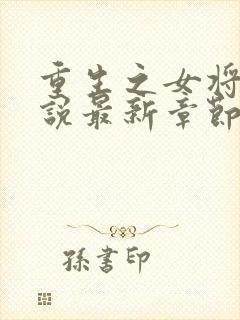 重生之女将
說最新章節
孫書印